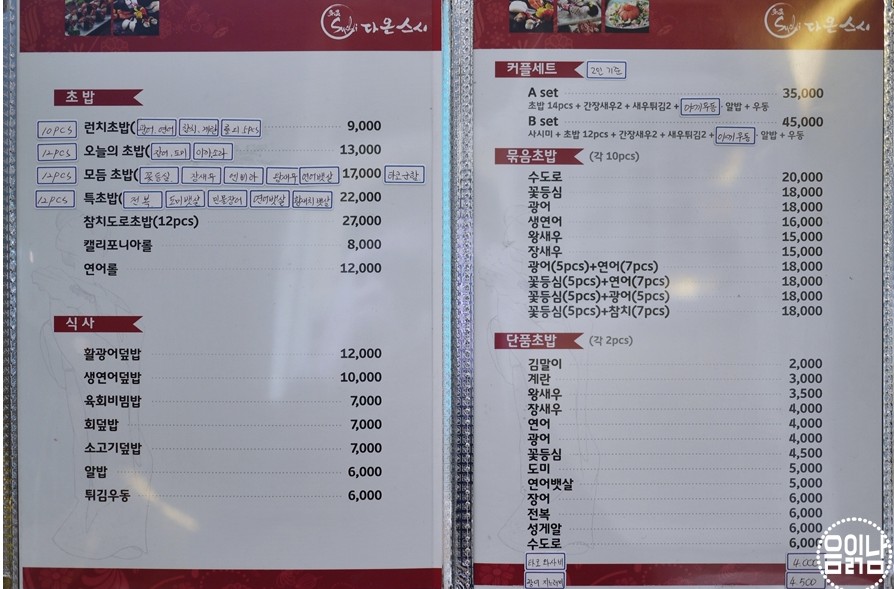 Sushi 다온스시
초밥
10PCS 런치초밥(광어.연어 참치.계란 롤외 5pcs 9,000
12PCS 오늘의 초밥( 연어.도미 이까소라 13,000
12PCS 모듬 초밥( 꽃등심 간장새우 엔비라 연어뱃살 17,000
12PCS 특초밥( 전복 도미뱃살 민물장어 연어뱃살 참치뱃살 22,000
참치도로초밥(12pcs) 27,000
캘리포니아롤 8,000
연어롤 12,000
식사
활광어덮밥 12,000
생연어덮밥 10,000
육회비빔밥 7,000
회덮밥 7,000
소고기덮밥 7,000
알밥 6,000
튀김우동 6,000
Sushi 다온스시
커플세트 2인 기준
A set 35,000
초밥 14pcs + 간장새우2 + 새우튀김2 + 야끼우동 · 알밥 + 우동
B set 45,000
사시미 + 초밥 12pcs + 간장새우2 + 새우튀김2 + 야끼우동 · 알밥 + 우동
묶음초밥 (각 10pcs)
수도로 20,000
꽃등심 18,000
광어 18,000
생연어 16,000
왕새우 15,000
장새우 15,000
광어(5pcs)+연어(7pcs) 18,000
꽃등심(5pcs)+연어(7pcs) 18,000
꽃등심(5pcs)+광어(5pcs) 18,000
꽃등심(5pcs)+참치(7pcs) 18,000
단품초밥 (각 2pcs)
김말이 2,000
계란 3,000
왕새우 3,500
장새우 4,000
연어 4,000
광어 4,000
꽃등심 4,500
도미 5,000
연어뱃살 5,000
장어 6,000
전복 6,000
성게알 6,000
수도로 6,000
타코와사비 4.000
광어 지느러미 4.500
음이나
음밝음